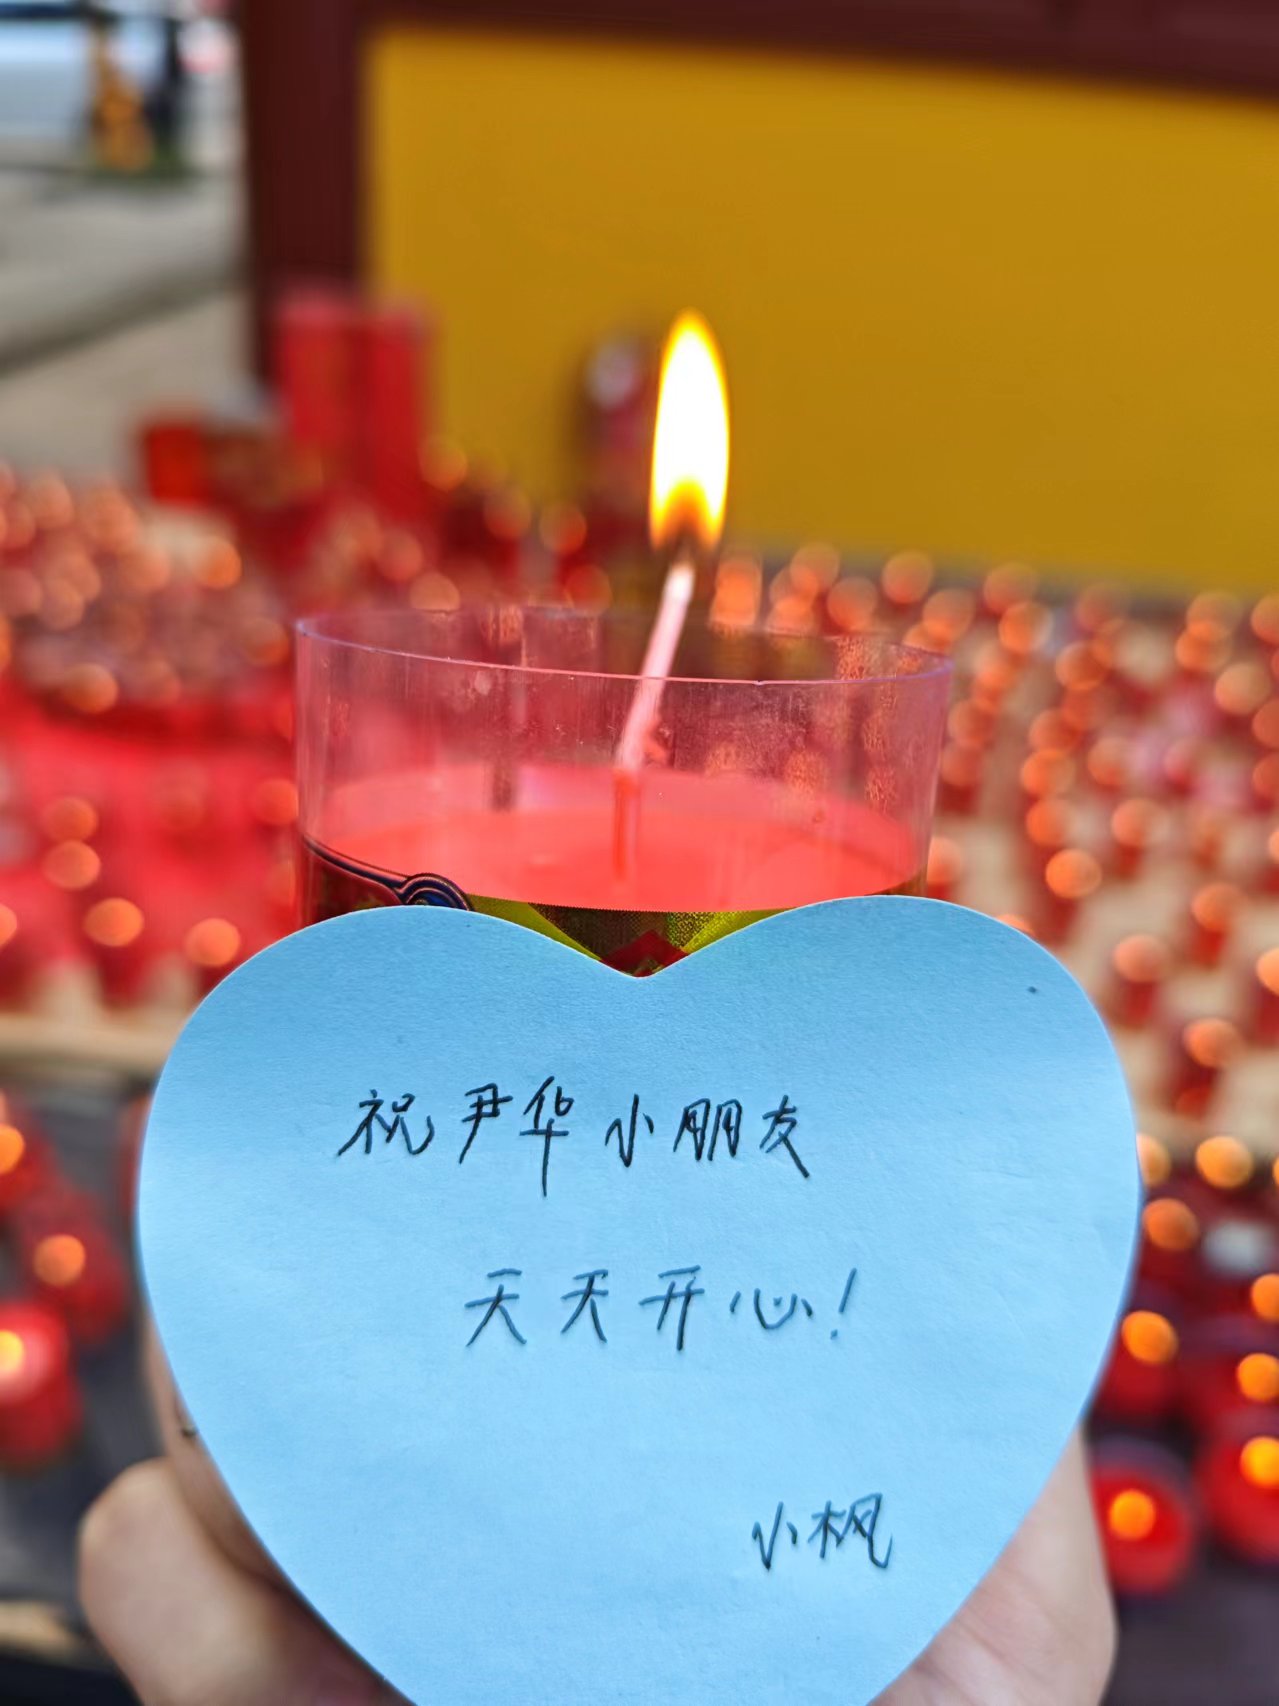 祝尹华小朋友
天天开心!
小枫